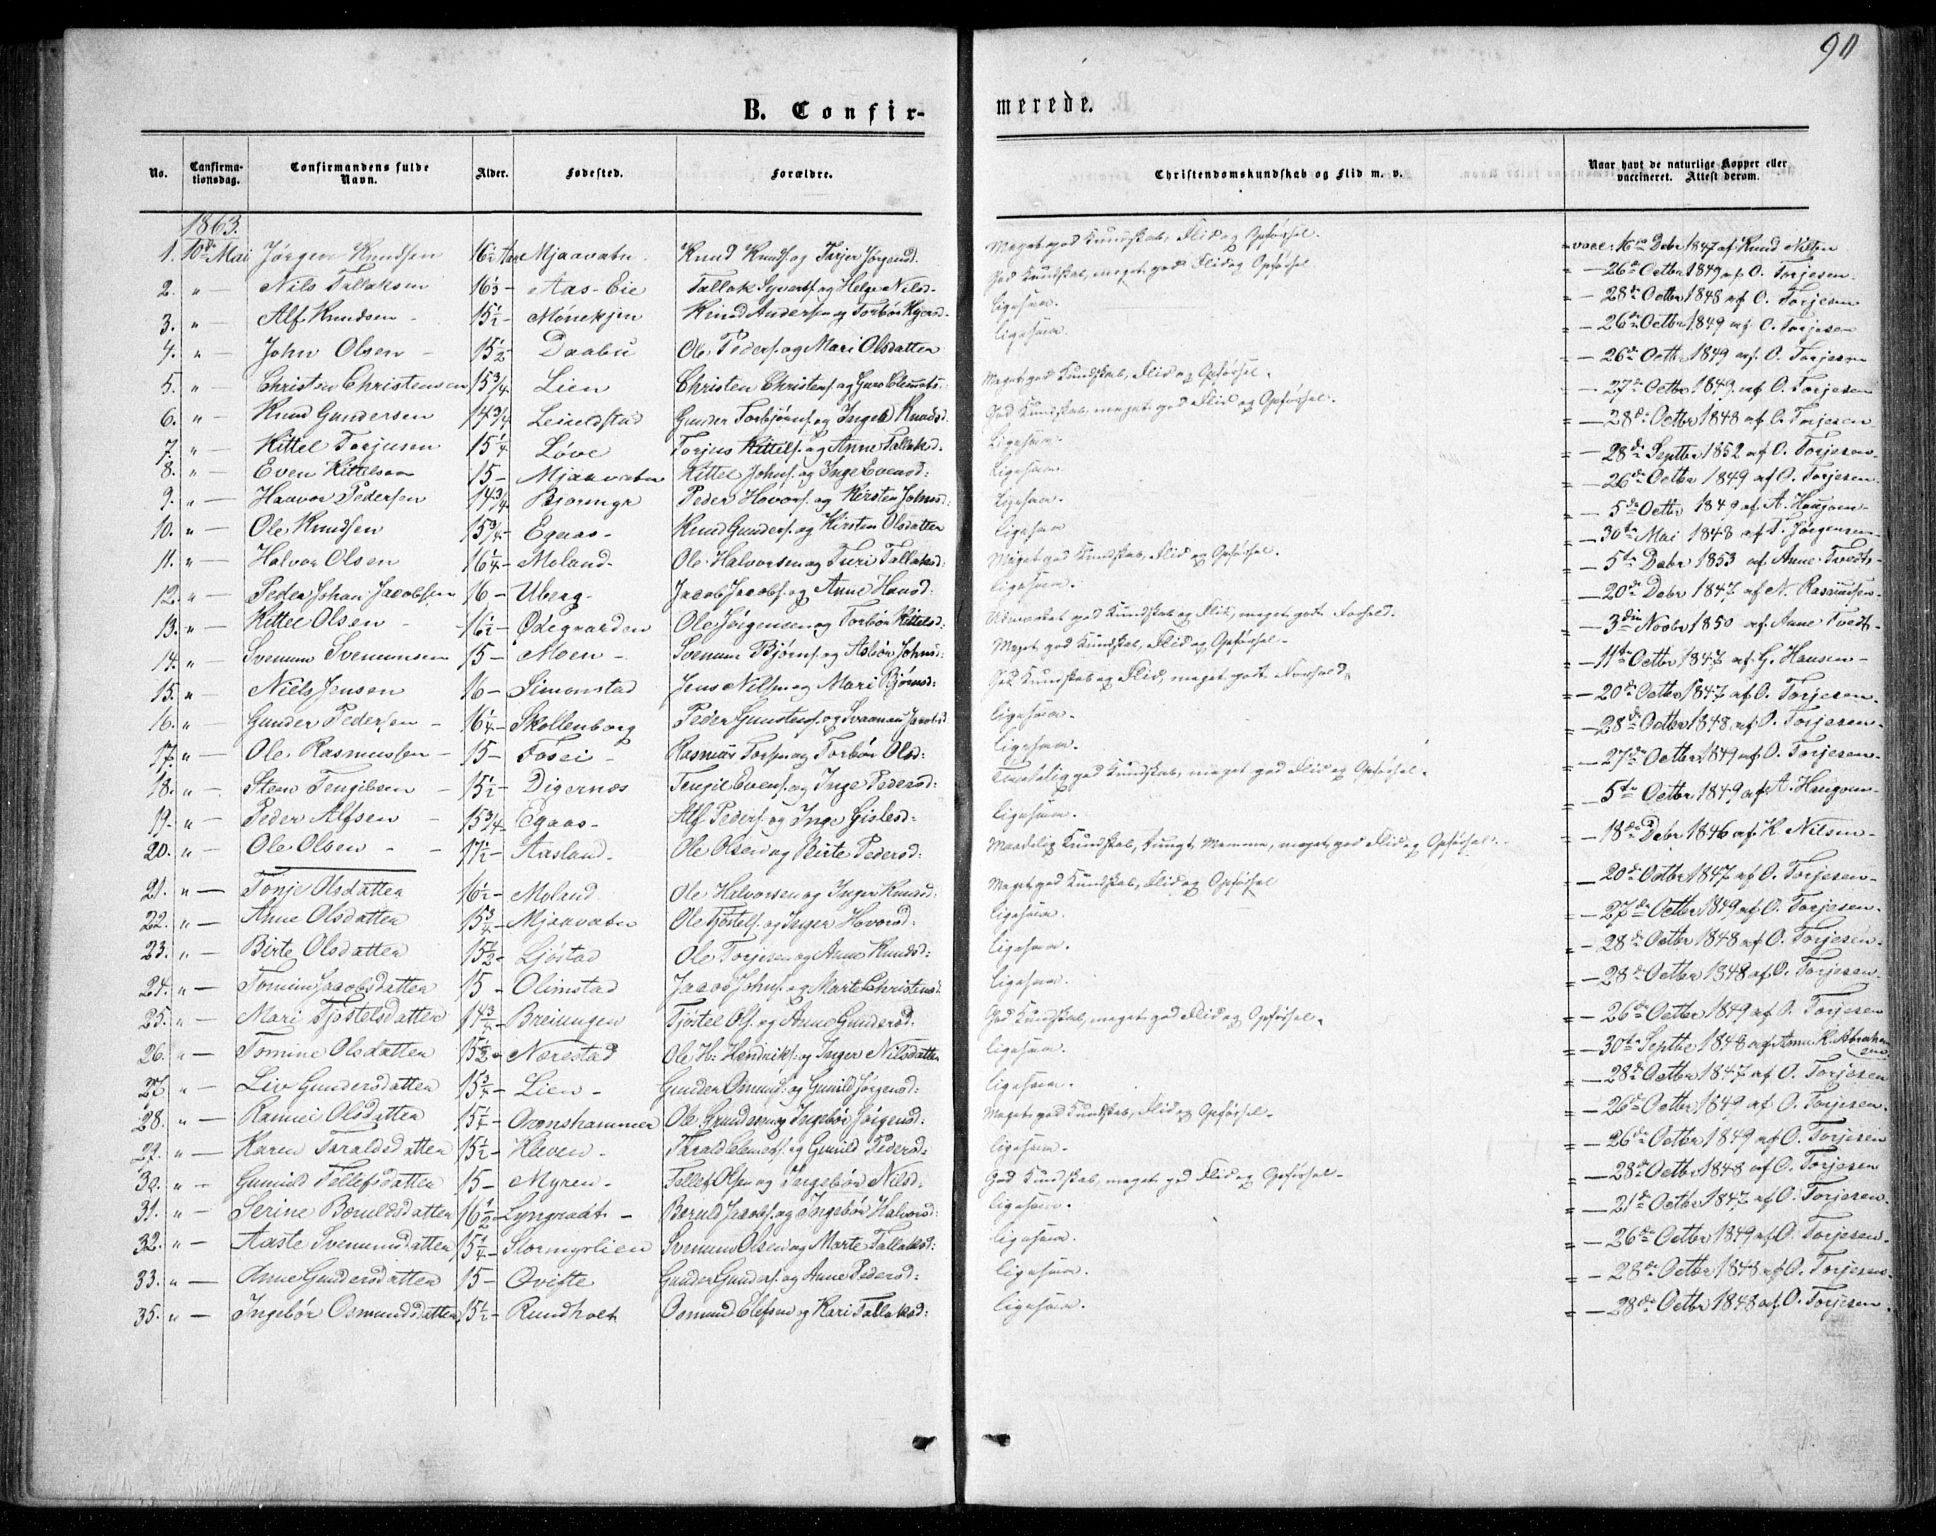 90
B. Confir-
merede.
No. Confirma-tionsdag. Confirmandens fulde Navn. Alder. Fødested. Forældre. Christendomskundskab og Flid m. v. Naar havt de naturlige Kopper eller vaccineret. Attest derom.
1863.
1. 10de Mai Jørgen Knudsen 16½ Aar Mjaavatn Knud Knuds. og Torjer Jørgensd. Meget god Kundskab, Flid og Opførsel. vacc. Debr 1847 af Knud Nilsen
2. " — Nils Tallaksen Aas-Eie Tallak Syverts. og Helge Nilsd. God Kundskab, meget god Flid og Opførsel. = — 26de Octbr 1849 af O. Torjesen.
3. " — Alf Knudsen 15½ — Monekjen Knud Anders. og Torbør ligesaa. = — 28de Octbr 1848 af O. Torjesen
4. " — John Olsen — 15½ — Daabu Ole Peders. og Mari Olsdatten ligesaa. = — 26de Octbr 1849 af O. Torjesen
5. " — Christen Christensen 15¾ — Lien Christen Christens. og Guro Clemets. Meget god Kundskab, Flid og Opførsel. = — 26de Octbr 1849 af O. Torjesen
6. " — Knud Gundersen 14¾ Gunder Torbjørns. og Inge Knudsd. God Kundskab, meget god Flid og Opførsel. = — 27de Octbr 1849 af O. Torjesen
7. " — Kittel Torjusen 15¼ Løve Torjus Kittels. og Anne Tallaksd. ligesaa. = — 28de Octbr 1848 af O. Torjesen
8. " — Even Kittelsen 15 — Mjaavatn Kittel Johns. og Inge Evensd: ligesaa. = — 28de Septbr 1852 af O. Torjesen.
9. " — Haavor Pedersen 14¾ Bjormyr Peder Hovors. og Kirsten Johnsd: ligesaa. = — 26de Octbr 1849 af O. Torjesen.
10. " — Ole Knudsen 15¾ — Egaas — Knud Gunders. og Kirsten Olsdatten ligesaa = — 5te Octbr 1849 af A. Haugom
11. " — Halvor Olsen 16¼ — Moland — Ole Halvorsen og Turi Tallaksd: Meget god Kundskab, Flid og Opførsel. = — 30te Mai 1848 af T. Jørgensen
12. " — Peder Johan Jacobsen 16 — Uberg — Jacob Jacobs. og Anne Hansd: ligesaa. = — 5te Debr 1853 af Anne Tvedt
13. " — Kittel Olsen — 16½ — Ødegaarden Ole Jørgensen og Torbør Kittelsd: Udmærket god Kundskab og Flid, meget godt Forhold. = — 20de Debr 1847 af N. Rasmusen
14. " — Svenum Svenumsen 15 — Moen — Svenum Bjørns. og Asbør Johnsd: Meget god Kundskab og Flid, Opførsel. = — 3die Novbr 1850 af Anne Tvedt
15. " Niels Jensen 16 — Simonstad Jens Nilsen og Mari Bjørnsd: God Kundskab og Flid, meget godt Forhold. = — 11te Octbr 1847 af G. Hansen —
16. " — Gunder Pedersen — 16¼ — Skollenborg Peder Gunstens. og Svaanau Jacobsd ligesaa. = — 20de Octbr 1847 af O. Torjesen.
17. " — Ole Rasmussen — 15 — Fosei — Rasmus Torsen og Torbør Olsd: ligesaa. = — 28de Octbr 1848 af O. Torjesen.
18. " — Sten Tengilsen — 15½ — Digernes Tengil Evens. og Inge Pedersd: Temmelig god Kundskab, meget god Flid og Opførsel. = — 27de Octbr 1849 af O. Torjesen —
19. " — Peder Alfsen — 15¾ — Egaas — Alf Peders. og Inge Gislesd: ligesaa. = — 5te Octbr 1849 af A. Haugom —
20. " — Ole Olsen — — 17½ — Aasland — Ole Olsen og Birte Pedersd: Maadelig Kundskab, tungt Nemme, meget god Flid og Opførsel. = — 18de Debr 1846 af K. Nilsen —
21. " — Tonje Olsdatten 16½ — Moland Ole Halvorsen og Inger Knudsd: Meget god Kundskab, Flid og Opførsel = — 20de Octbr 1847 af O. Torjesen —
22. " — Anne Olsdatten 15¾ — Mjaavatn Ole Tjøstels. og Inger Hovorsd: ligesaa. = — 27de Octbr 1849 af O. Torjesen —
23. " — Birte Olsdatten 15½ — Ljøstad Ole Torjesen og Anne Knudsd: ligesaa. = — 28de Octbr 1848 af O. Torjesen.
24. " — Tomine Jacobsdatten 15 — Olimstad Jacob Johns. og Marte Christensd. ligesaa. = — 28de Octbr 1848 af O. Torjesen.
25. " — Mari Tjøstelsdatten 14¾ — Breiungen Tjøstel Ols. og Anne Gundersd. God Kundskab, meget god Flid og Opførsel. = — 26de Octbr 1849 af O. Torjesen
26. " — Tomine Olsdatten 15½ — Nærestad Ole H: Hendriks. og Inger Nilsdatten ligesaa. = — 30te Septbr 1848 af Anne K. Abrahamsen
27. " — Liv Gundersdatten 15¾ — Lien — Gunder Omunds. og Gunild Jørgensd: ligesaa. = — 28de Octbr 1847 af O. Torjesen
28. " — Rannei Olsdatten 15½ — Oxenshammer Ole Gundersen og Ingebør Jørgensd: Meget god Kundskab, Flid og Opførsel. = — 26de Octbr 1849 af O. Torjesen.
29. " — Karen Taraldsdatten 15½ — Kleven — Tarald Clemets. og Gunild Pedersd: ligesaa. = — 26de Octbr 1849 af O. Torjesen
30. " — Gunuld Tellefsdatten 15 — Myren — Tellef Olsen og Ingebør Nilsd: God Kundskab, meget god Flid og Opførsel. = — 28de Octbr 1848 af O. Torjesen
31. " — Serine Beruldsdatten 16½ — Lyngradt — Beruld Jacobs. og Ingebør Halvorsd: ligesaa. = — 21de Octbr 1847 af O. Torjesen
32. " — Aaste Svenumsdatten 15¼ — Stormyrlien Svenum Olsen og Marte Tallaksd: ligesaa. = — 26de Octbr 1849 af O. Torjesen.
33. " — Anne Gundersdatten 15 — Qvifte Gunder Gunders. og Anne Pedersd: ligesaa. = — 28de Octbr 1848 af O. Torjesen
35. " — Ingebør Osmundsdatten 15½ — Rundholt Osmund Elefsen og Kari Tallaksd: ligesaa. = — 28de Octbr 1848 af O. Torjesen.